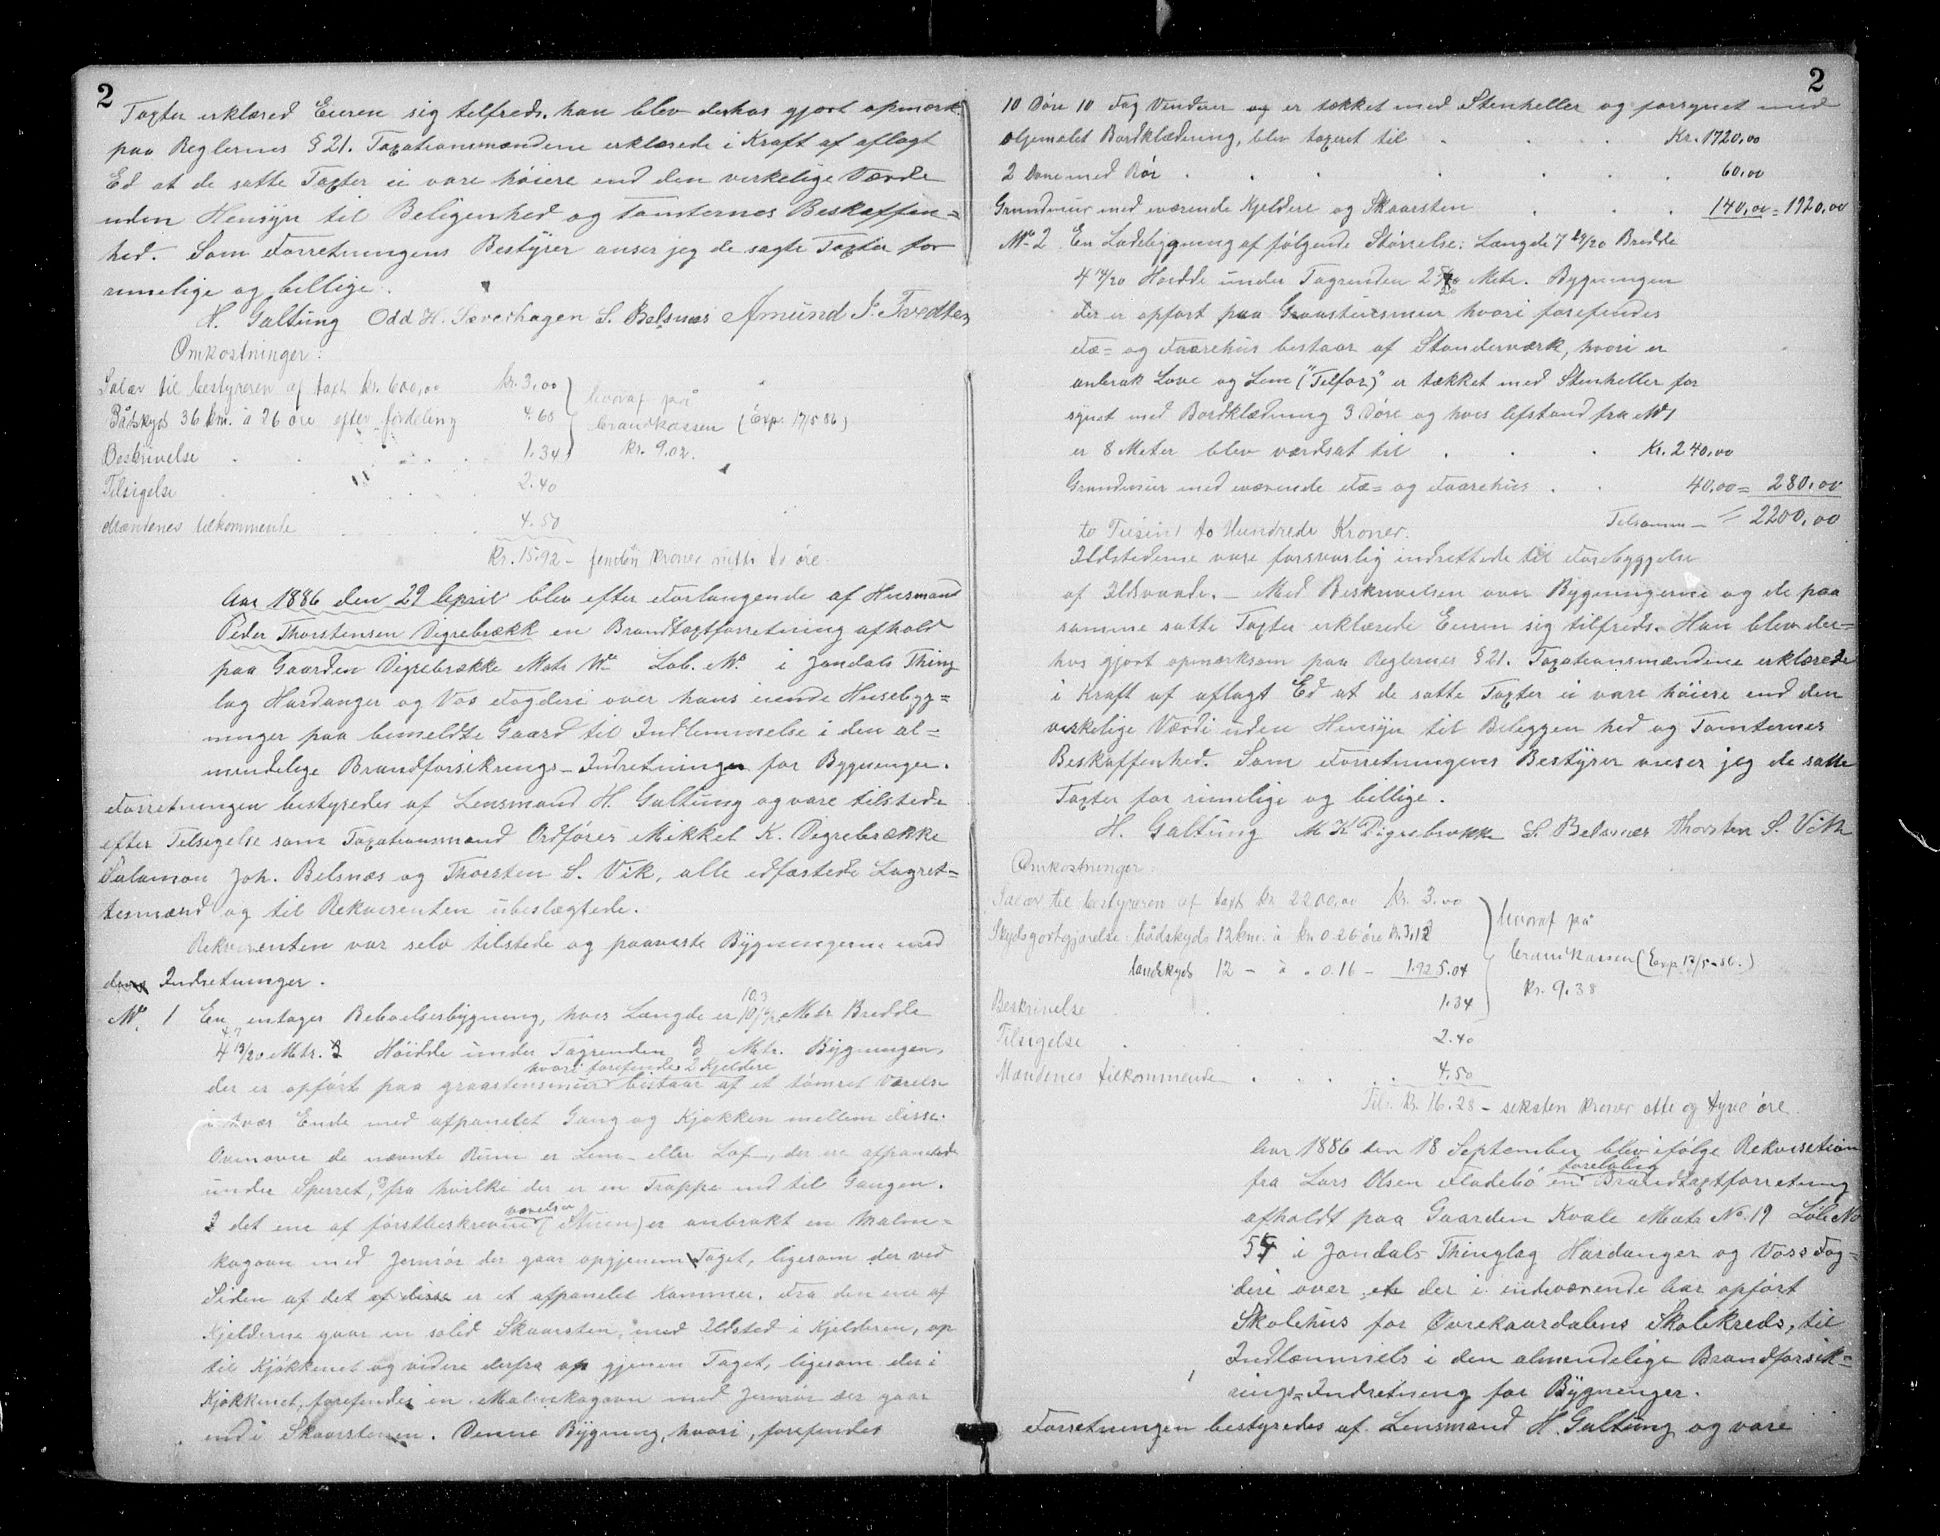 2
Taxter erklæred Eieren sig tilfreds, han blev derhos gjort opmærk.
paa Reglernes § 21. Taxationsmændene erklærede i Kraft af aflagt
Ed at de satte Taxter ei vare høiere end den virkelige Værde
uden Hensyn til Beligenhed og Tomternes Beskaffen=
hed. Som Forretningens Bestyrer anser jeg de sagte Taxter for
rimelige og billige.
H. Galtung Odd H. S. Belsnæs Amund J. Tvedten
Omkostninger:
Salær til bestyreren af taxt kr. 600,00 kr. 3,00
Bådskyds 36 km. à 26 øre efter fordeling 4.68
hvoraf på
brandkassen (Exp. 17/5 86)
kr. 9.02.
Beskrivelse . . . 1.34
Tilsigelse . . . 2.40
Mændenes tilkommende . . . 4.50
Kr. 15.92 – femten kroner nitti to øre.
Aar 1886 den 29 April blev efter Forlangende af Husmand
Peder Thorstensen Digrebrækk en Brandtaxtforretning afhold
paa Gaarden Digrebrække Matr No Løb. No i Jondals Thing
lag Hardanger og Vos Fogderi over hans iende Husebyg=
ninger paa bemeldte Gaard til Indlemmelse i den al=
mindelige Brandforsikrings-Indretninger for Bygninger.
Forretningen bestyredes af Lensmand H. Galtung og vare tilstede
efter Tilsigelse som Taxationsmænd Ordfører Mikkel K. Digrebrække
Salamon Joh. Belsnæs og Thorsten S. Vik, alle edfæstede Lagret=
tesmænd og til Rekvirenten ubeslægtede.
Rekvirenten var selv tilstede og paaviste Bygningerne med
deres Indretninger.
No. 1 En entages Beboelsesbygning, hvis Længde er 10.3 Metr Bredde
4.7
4 13/20 Metr. Høidde under Tagrenden 3 Metr. Bygningen,
hvori forefindes 2 Kjeldere
der er opført paa graastensmur bestaar af et tømret Værelse
i hvær Ende med afpanelet Gang og Kjøkken mellem disse.
Ovenover de nævnte Rum er Lem- eller Loft, der ere afpanelede
under Sperret, fra hvilke der er en Trappe ned til Gangen.
værelser
I det ene af førstbeskrevne (Stuen) er anbrakt en Malm=
kagovn med Jernrør der gaar opgjenem Taget, ligesom der ved
Siden af det af disse er et afpanelet Kammer. Fra den ene af
Kjelderne gaar en solid Skaarsten, med Ildsted i Kjelderen, op
til Kjøkkenet og videre derfra op gjenem Taget, ligesom der i
Kjøkkenet, forefindes en Malmkagovn med Jernrør der gaar
ind i Skaarstenen. Denne Bygning, hvori, forefindes
2
10 Døre 10 Fag Vinduer og er tækket med Stenheller og forsynet med
oljemalet Bordklædning, blev taxeret til . . . Kr. 1720,00
2 Ovne med Rør . . . 60,00
Grundmur med værende Kjeldere og Skaarsten . . . 140,00 = 1920,00
No 2 En Ladebygning af følgende Størrelse: Længde 7 19/20 Bredde
4 14/20 Høidde under Tagrenden 2 Metr. Bygningen
der er opført paa Graastensmur hvori forefindes
Fæ= og Faarehus bestaar af Stenderværk, hvori er
anbrak Love og Lem ("Telfar") er tækket med Stenheller for
synet med Bordklædning 3 Døre og hvis Afstand fra No 1
er 8 Meter blev værdsat til . . . Kr. 240,00
Grundmur med værende Fæ= og Faarehus . . 40,00 = 280,00
Tilsamm – 2200,00
to Tusind to Hundrede Kroner.
Ildstederne vare forsvarlig indrettede til Forebyggelse
af Ildsvaade. – Med Beskrivelsen over Bygningerne og de paa
samme satte Taxter erklærede Eieren sig tilfreds. Han blev der=
hos gjort opmærksom paa Reglernes § 21. Taxationsmændene erklærede
i Kraft af aflagt Ed at de satte Taxter ei vare høiere end den
virkelige Værdi uden Hensyn til Beliggen hed og Tomternes
Beskaffenhed. Som Forretningens Bestyrer anser jeg de satte
Taxter for rimelige og billige.
H. Galtung M K Digrebrækk S. Belsnæs Thorsten S. Vik
Omkostninger
Salær til bestyreren af taxt kr 2200,00 kr. 3.00
Skydsgodtgjørelse: bådskyds 12 km. à kr. 0.26 øre kr. 3,12
landskyds 12 – à . 0.16 – 1.92 5.04
hvoraf på
brandkassen (Exp. 17/5-86.)
kr. 9.38
Beskrivelse . . . 1.34
Tilsigelse . . . 2.40
Mændenes tilkommende . . . 4.50
Tils. kr. 16.28 – seksten kroner otte og tyve øre.
Aar 1886 den 18 September blev ifølge Rekvisetion
foreløbig
fra Lars Olsen Flodebø en Brandtaxtforretning
afholdt paa Gaarden Kvale Matr No. 19 Løb No
54 i Jondals Thinglag Hardanger og Voss Fog=
deri over et der i indeværende Aar opført
Skolehus for Øvrekaardalens Skolekreds, til
Indlæmmels i den almendelige Brandforsik=
rings=Indretning for Bygninger.
Forretningen bestyredes af Lensmand H. Galtung og vare